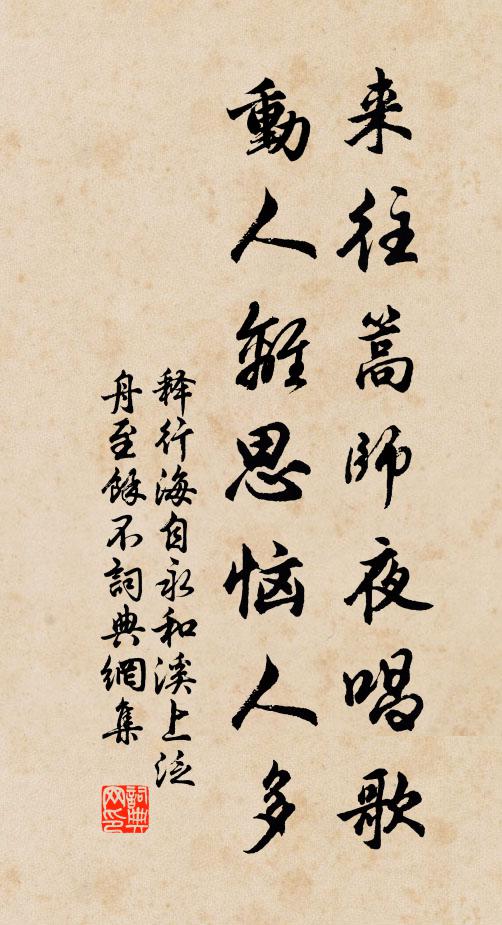 来往篙師夜唱歌
動人離思惱人多
释行海自永和溪上泛
舟至餘不詞典網集
詞典
网印